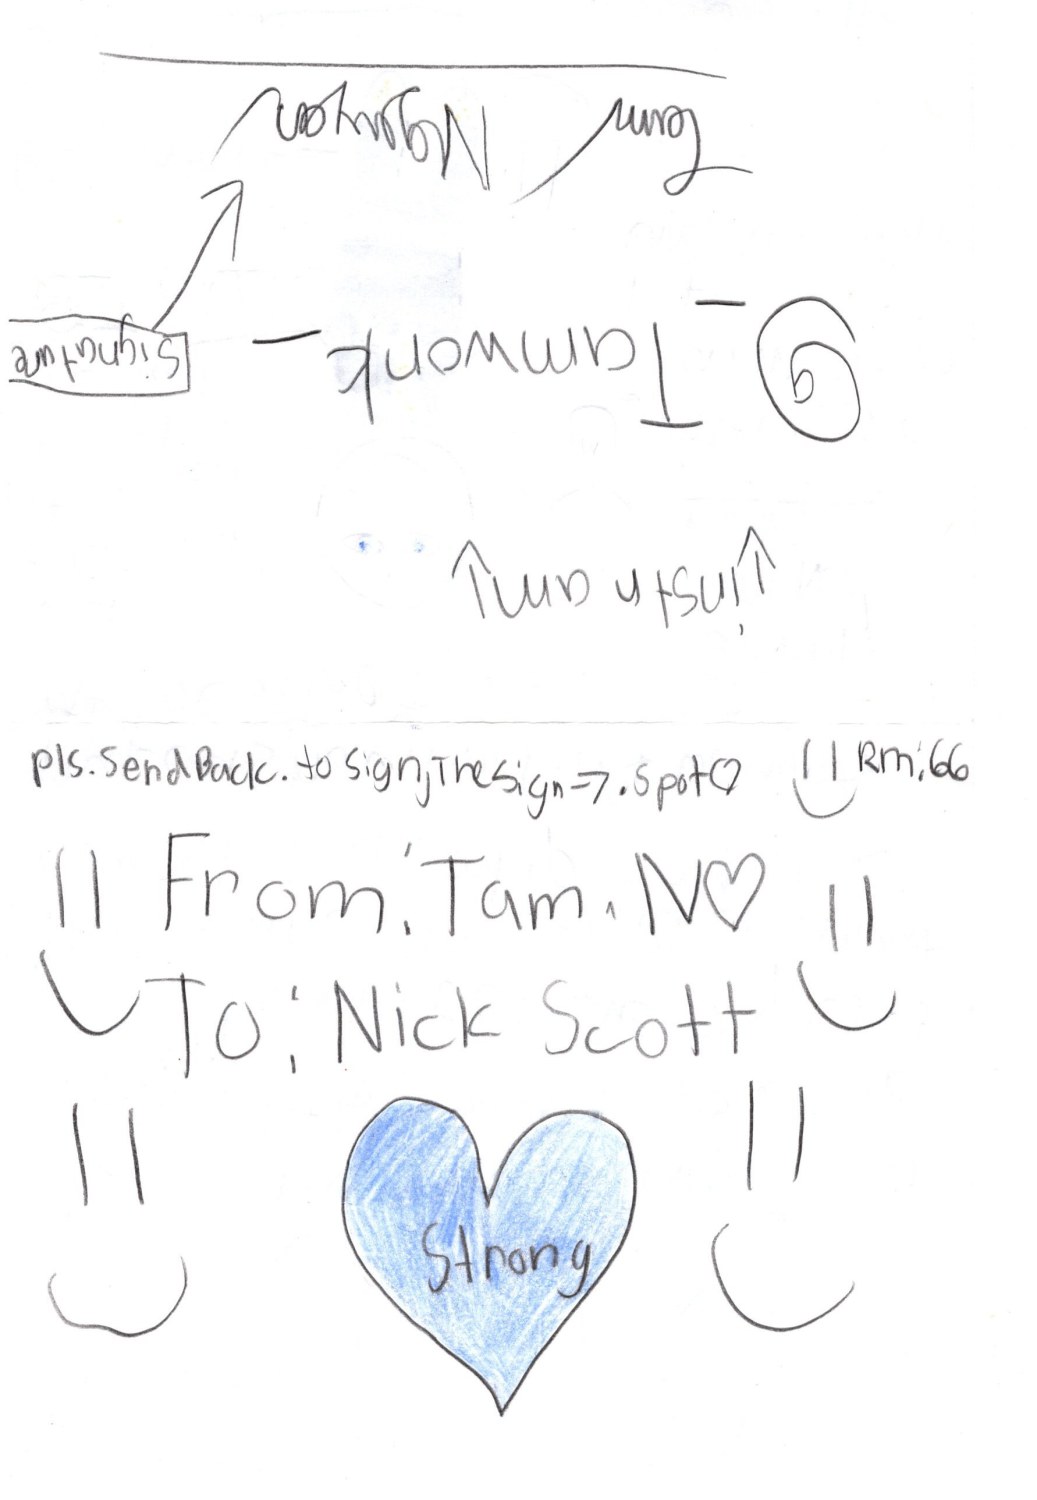 ↓inst r am↓
@ -Tamwork- Signature
Tam Nguyen
pls.SendBack.to sign,The sign=>.spot♡ Rm:66
From: Tam. N♡
To: Nick Scott
Strong